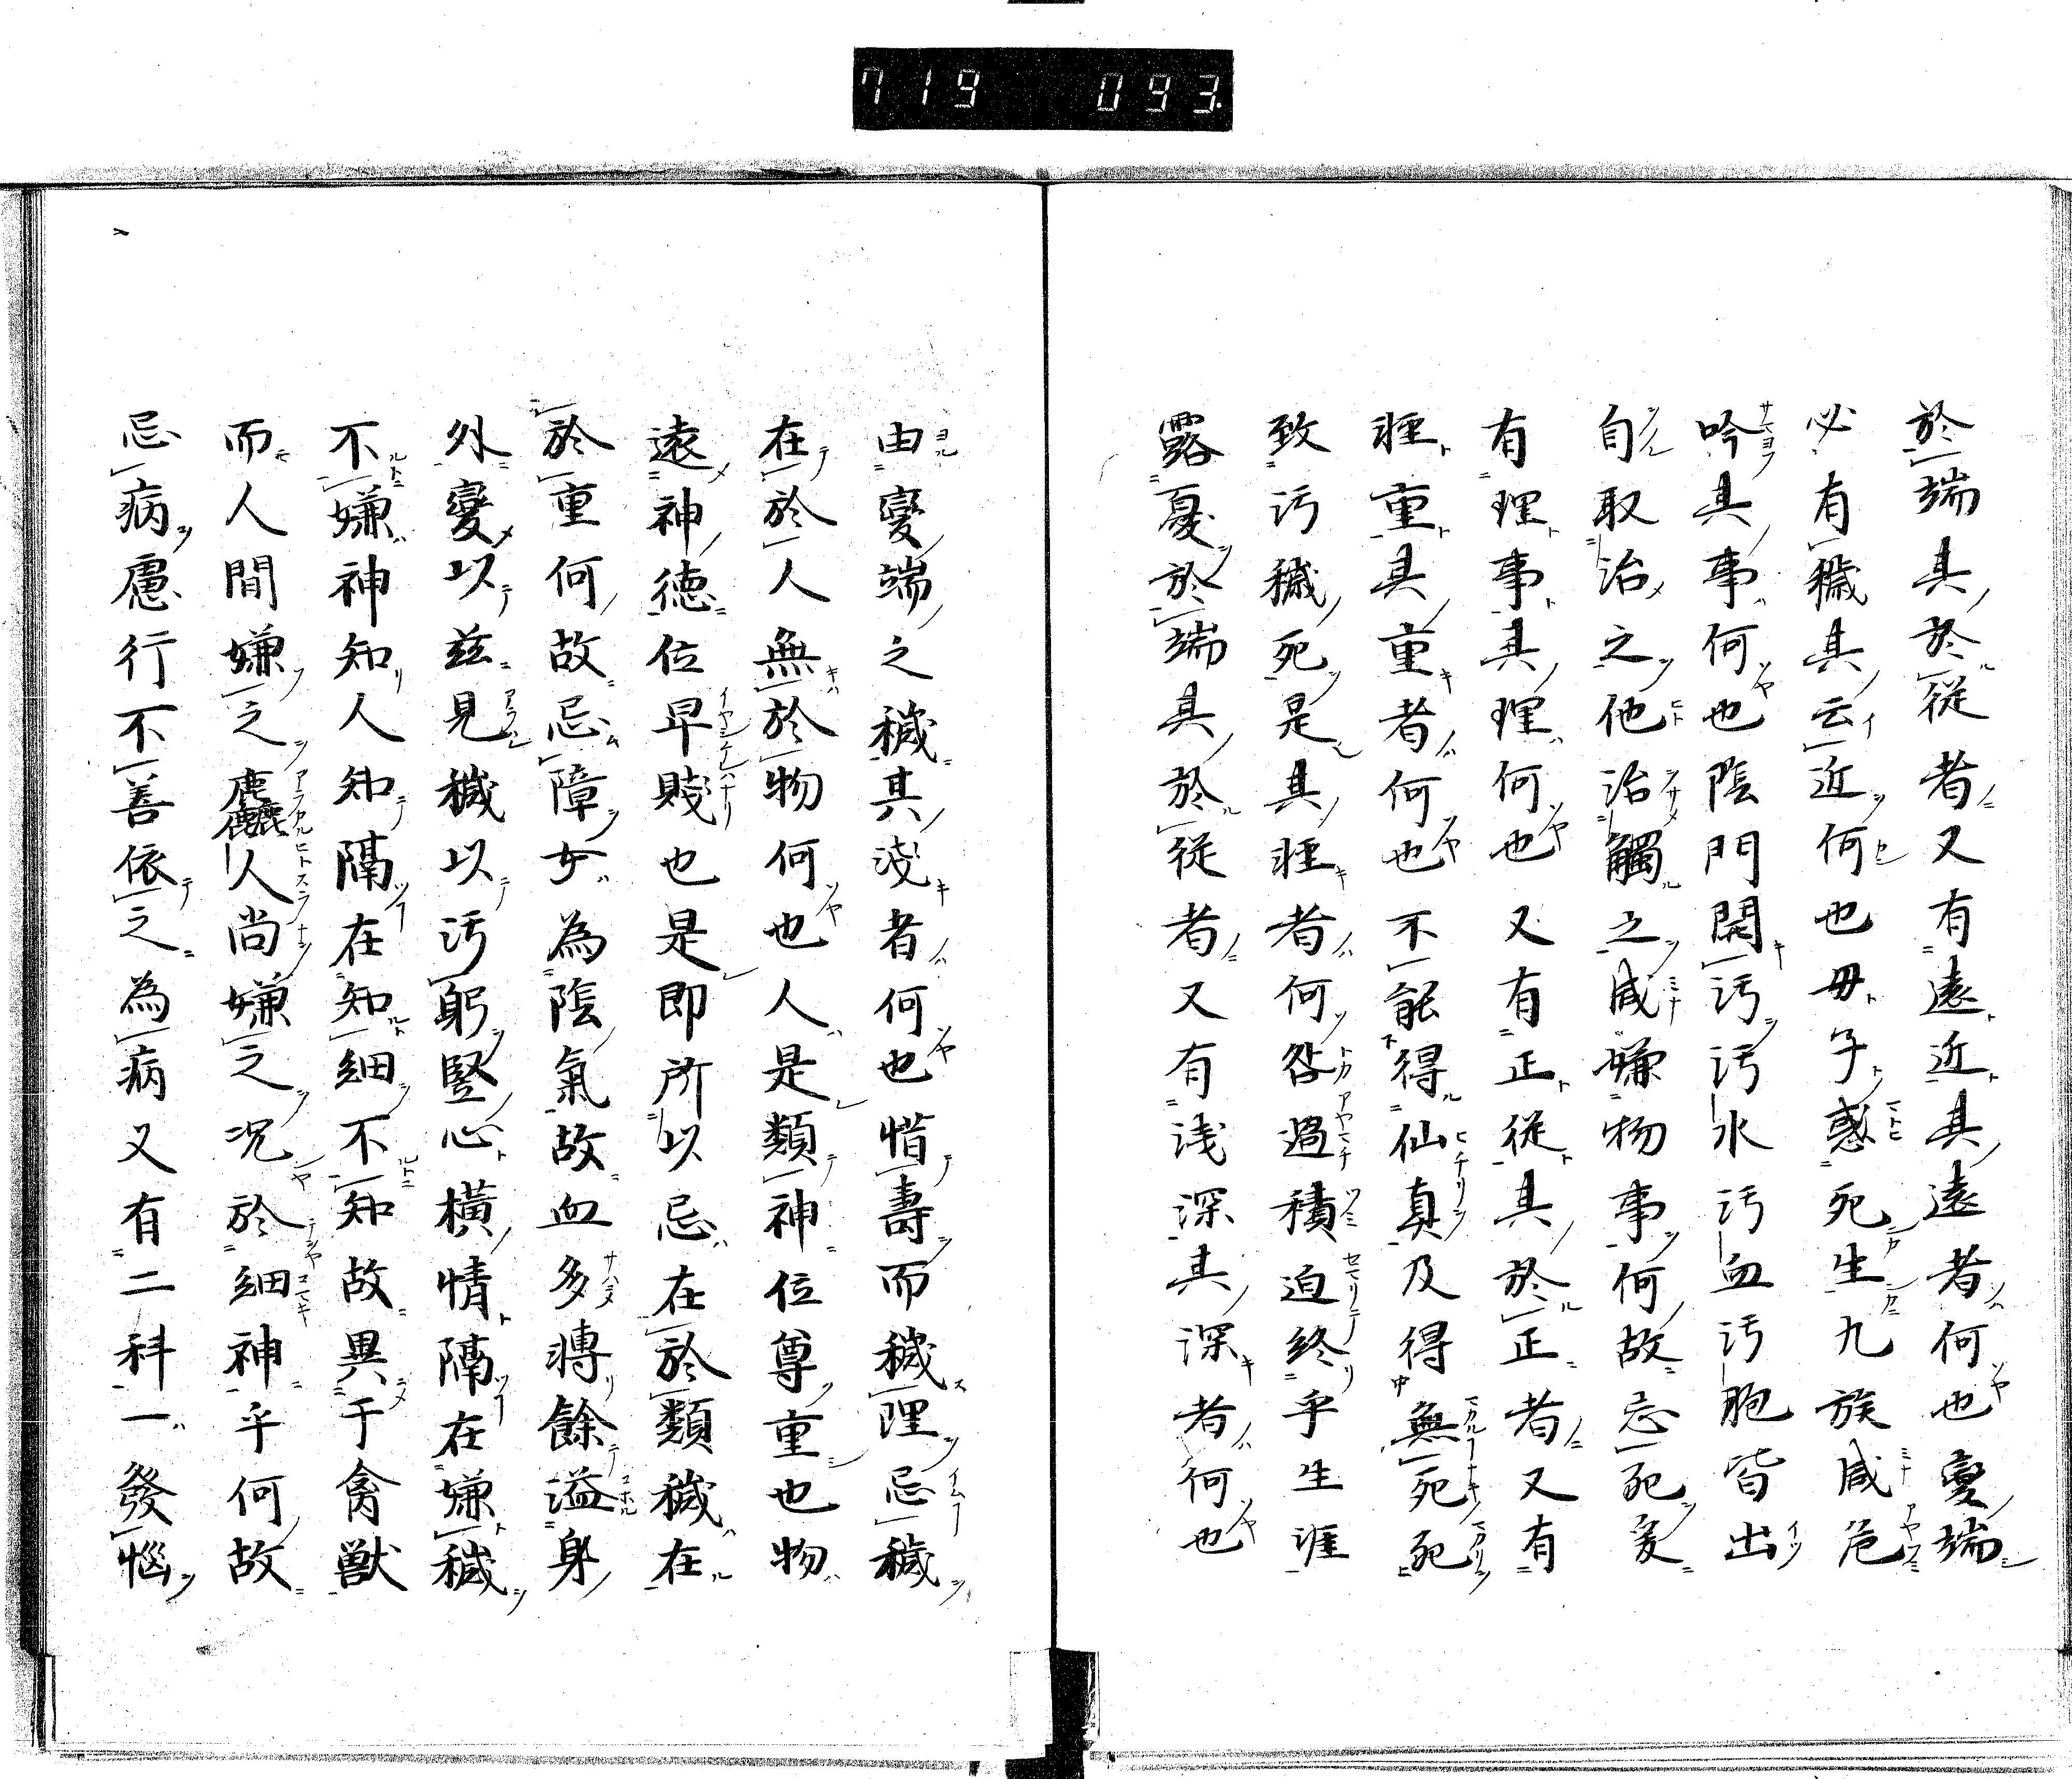 719 093.
於端其於従者又有遠近其遠者何也変端
必有穢其云近何也母子惑死生九族咸危
吟其事何也陰門開汚汚水汚血汚胞皆出
自取治之他治觸之咸嫌物事何故忌死爰
有理事其理何也又有正従其於正者又有
軽重其重者何也不能得仙真及得無死死
致汚穢死是其軽者何咎過積迫終乎生涯
露憂於端其於従者又有浅深其深者何也
由変端之穢其浅者何也惜壽而穢理忌穢
在於人無於物何也人是類神位尊重也物
遠神徳位早賤也是即所以忌在於類穢在
於重何故忌障女為陰氣故血多轉餘溢身
外變以茲見穢以汚躬竪心横情隔在嫌穢
不嫌神知人知隔在知細不知故異于禽獣
而人間嫌之麤人尚嫌之况於細神乎何故
忌病慮行不善依之為病又有二科一發惱